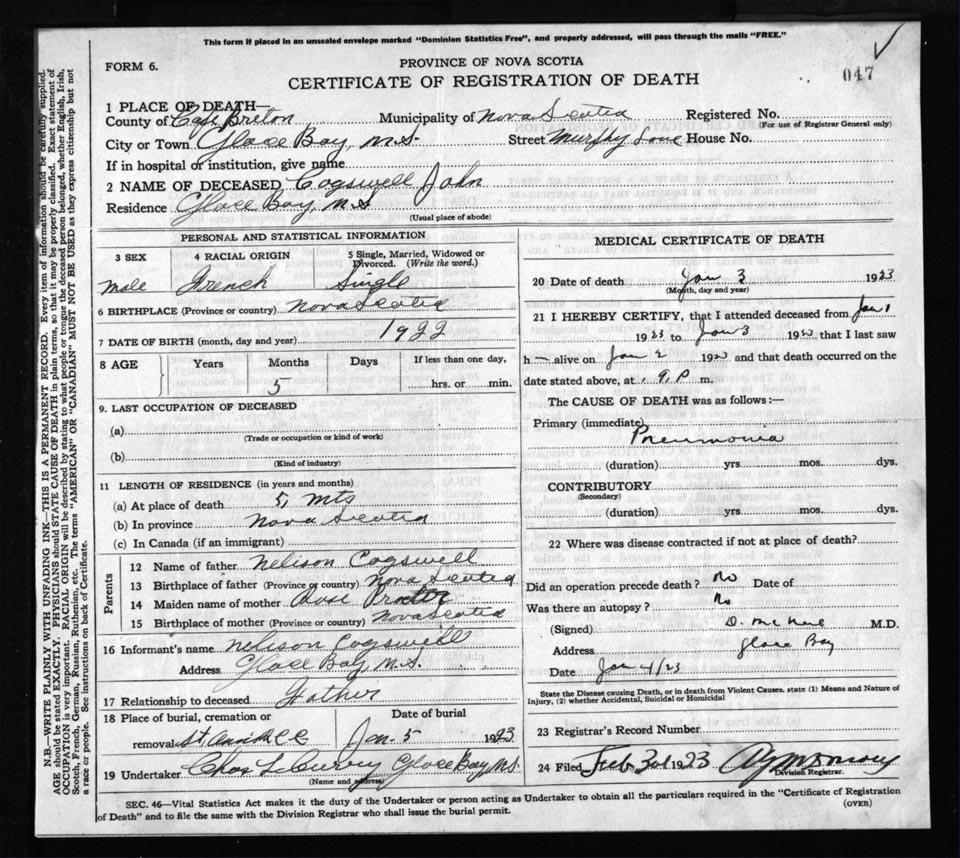 This form if placed in an unsealed envelope marked "Dominion Statistics Free", and properly addressed, will pass through the mails "FREE."
FORM 6.
PROVINCE OF NOVA SCOTIA
047
CERTIFICATE OF REGISTRATION OF DEATH
1 PLACE OF DEATH—
County of Cape Breton Municipality of Nova Scotia Registered No.
(For use of Registrar General only)
City or Town Glace Bay, N.S. Street Murphy Lane House No.
If in hospital or institution, give name
2 NAME OF DECEASED Cogswell John
Residence Glace Bay, N.S.
(Usual place of abode)
PERSONAL AND STATISTICAL INFORMATION
3 SEX 4 RACIAL ORIGIN 5 Single, Married, Widowed or Divorced. (Write the word.)
male French Single
6 BIRTHPLACE (Province or country) Nova Scotia
7 DATE OF BIRTH (month, day and year) 1922
8 AGE Years Months Days If less than one day,
5 hrs. or min.
9. LAST OCCUPATION OF DECEASED
(a)
(Trade or occupation or kind of work)
(b)
(Kind of industry)
11 LENGTH OF RESIDENCE (in years and months)
(a) At place of death 5, mts
(b) In province Nova Scotia
(c) In Canada (if an immigrant)
Parents
12 Name of father Nelison Cogswell
13 Birthplace of father (Province or country) Nova Scotia
14 Maiden name of mother Procter
15 Birthplace of mother (Province or country) Nova Scotia
16 Informant's name Nelison Cogswell
Address Glace Bay, N.S.
17 Relationship to deceased Father
18 Place of burial, cremation or Date of burial
removal Jan. 5 1923
19 Undertaker Glace Bay, N.S.
(Name and address)
MEDICAL CERTIFICATE OF DEATH
20 Date of death Jan 3 1923
(Month, day and year)
21 I HEREBY CERTIFY, that I attended deceased from Jan 1
1923 to Jan 3 1923 that I last saw
h— alive on Jan 2 1923 and that death occurred on the
date stated above, at 9, P m.
The CAUSE OF DEATH was as follows:—
Primary (immediate)
Pneumonia
(duration) yrs mos. dys.
CONTRIBUTORY
(Secondary)
(duration) yrs mos. dys.
22 Where was disease contracted if not at place of death?
Did an operation precede death? No Date of
Was there an autopsy? No
(Signed) M.D.
Address Glace Bay
Date Jan 4/23
State the Disease causing Death, or in death from Violent Causes, state (1) Means and Nature of
Injury, (2) whether Accidental, Suicidal or Homicidal
23 Registrar's Record Number
24 Filed Feb 3rd 1923
Division Registrar.
SEC. 46—Vital Statistics Act makes it the duty of the Undertaker or person acting as Undertaker to obtain all the particulars required in the "Certificate of Registration
of Death" and to file the same with the Division Registrar who shall issue the burial permit.
(OVER)
N.B.—WRITE PLAINLY WITH UNFADING INK—THIS IS A PERMANENT RECORD. Every item of information should be carefully supplied.
AGE should be stated EXACTLY. PHYSICIANS should STATE CAUSE OF DEATH in plain terms, so that it may be properly classified. Exact statement of
OCCUPATION is very important. RACIAL ORIGIN will be described by stating to what people or tongue the deceased person belonged, whether English, Irish,
Scotch, French, German, Russian, Ruthenian, etc. The terms "AMERICAN" OR "CANADIAN" MUST NOT BE USED as they express citizenship but not
a race or people. See instructions on back of Certificate.